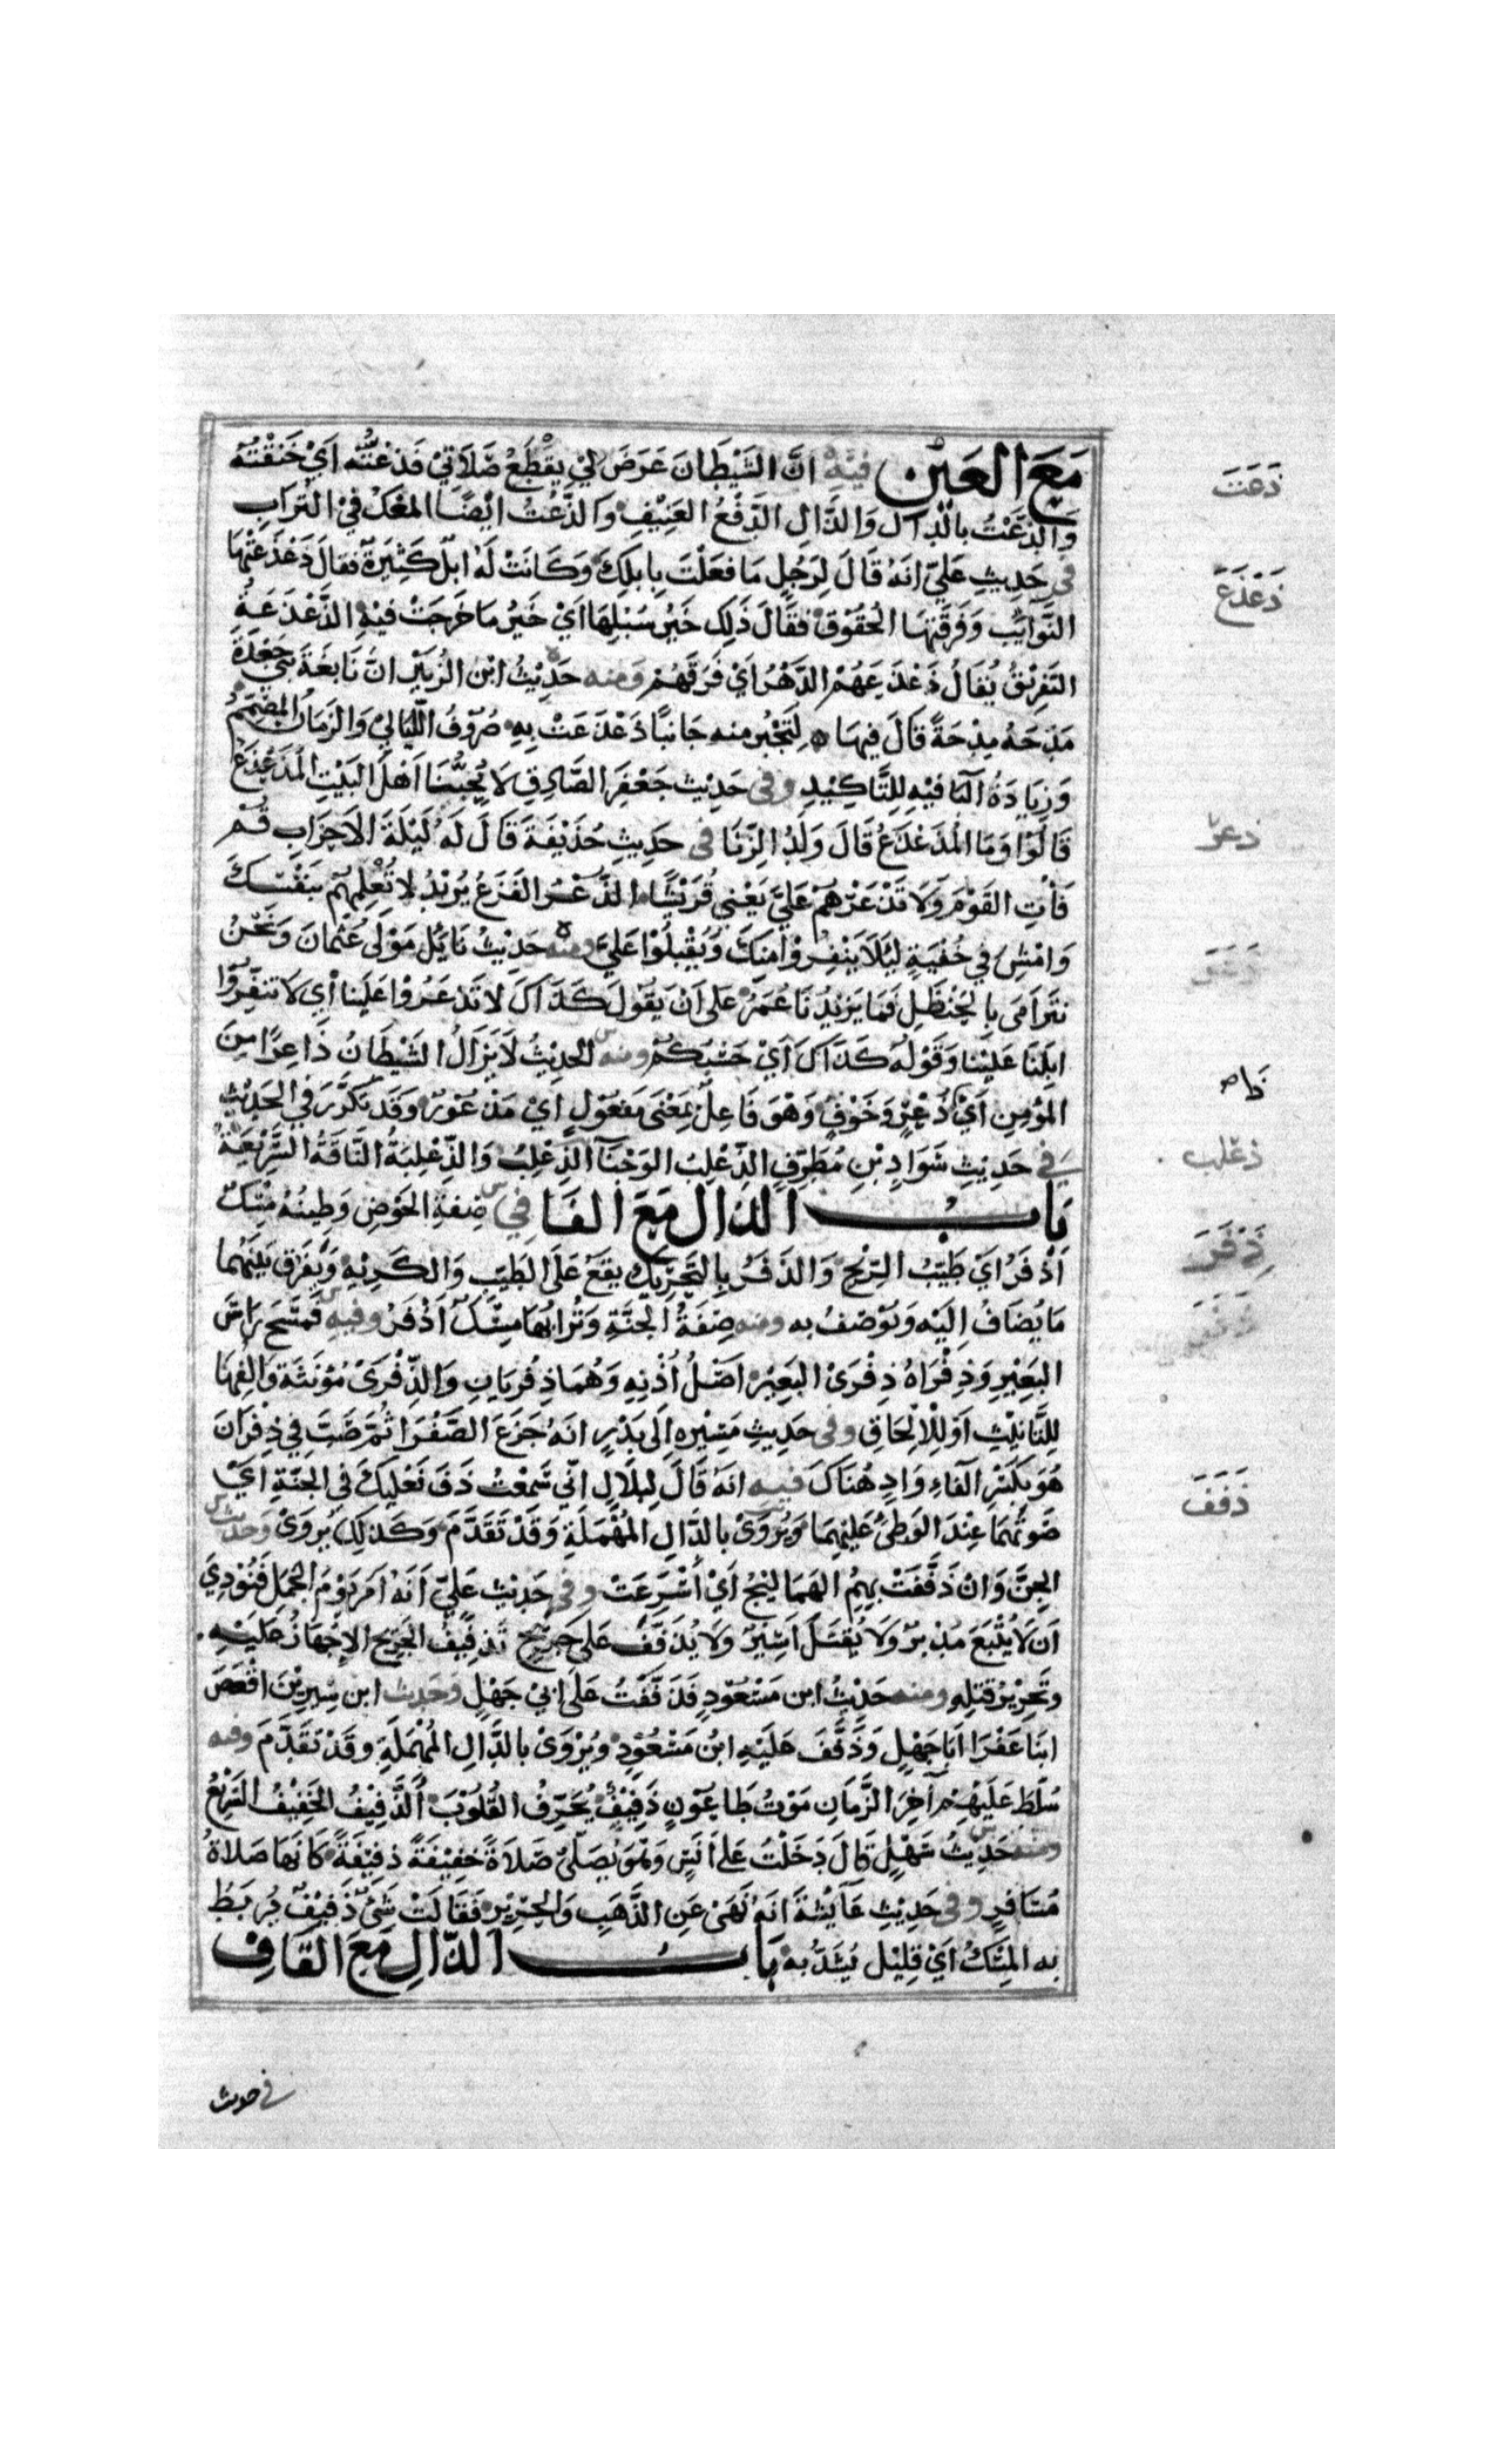 مَعَ العَيْن فيه انَّ الشَّيْطَانَ عَرَضَ لي يقطَعُ صَلَاتي فَذعَتُّه اَيْ خَنَقْتُهُ
وَالذَّعْتُ بالدال وَالذَّالِ الدَّفْعُ العَنِيْفِ وَالذَّعْتُ ايْضًا المعْكُ فيْ التُرَابِ
في حَدِيثِ عَليّ انهُ قَالَ لِرَجُلٍ مَا فعَلْتَ بِابلِكَ وَكَانَتْ لَهُ ابلٌ كَثِيرَةٌ فقالَ ذَعْذَعَتْهَا
النَّوَايبُ وَفَرَقَتْهَا الحُقُوْقُ فقَالَ ذَلِكَ خَيْرُ سُبُلِهَا اَيْ خَيْرُ مَا خَرَجَتْ فيْهِ الذَّعْذَعَةُ
التَفرِيْقُ يُقالُ ذَعْذَعَهُمْ الدَّهْرُ اَيْ فَرَقَهُمْ وَمنه حَدِيْثُ ابْن الزُبَيْر انَّ نَابغَةَ بَني جَعْدَةَ
مَدَحَهُ مِدْحَةً قَالَ فِيهَا لِتَجْبُر منه جَانبًا ذَعْذَعَتْ بِهِ صُرُوْفُ اللَّيَاليْ وَالزَمَانُ المُصَمِّمُ
وَزِيَادَةُ البَا فيْهِ لِلتَّاكِيْدِ وفي حَدِيْث جَعْفَرَ الصَّادِقِ لَا يُحِبُّنَا اَهْلَ البَيْتِ المُذَعْذَعُ
قَالُوْا وَمَا المُذَعْذَعُ قَالَ وَلَدُ الزِّنَا في حَدِيثِ حُذَيْفَةَ قَالَ لَهُ لَيْلَةَ الاَحزَابِ قُمْ
فَأْتِ القَوْمَ وَلَا تَذْعَرْهُمْ عَليَّ يَعْني قُرَيْشًا الذُّعْرُ الفَزَعُ يُرِيْدُ لا تُعْلِمهُمْ بنَفْسِكَ
وَامْشِ في خُفْيَةٍ لئَلَا يَنْفِرُوْا مِنكَ وَيُقْبِلُوْا عَليَّ ومنه حَدِيْثُ نَايلٍ مَوْلَى عُثمانَ وَنَحْنُ
نَتَرَامَى بالحَنْظَلِ فَمَا يَزيْدُنَا عُمَرُ عَلى اَنْ يَقُوْلَ كَذَاكَ لَا تَذعَرُوْا عَلَيْنا أي لَا تنفِّرُوْا
ابلَنَا عَليْنَا وَقَوْلُهُ كَذَاكَ اَيْ حَسْبكُمْ ومنه الحدِيْثُ لَا يَزَالُ الشَيْطَانُ ذَاعِرًا مِنَ
المُؤْمِنِ اَيْ ذُعْرٍ وَخَوْفٍ وَهْوَ فَاعِلٌ بمَعْنَى مَفعُوْلٍ ايْ مَذْعُوْرٌ وَقَد تَكرَّرَ في الحَدِيْث
في حَدِيثِ سَوَادِ بْنِ مُطَرِّفٍ الذّعْلِبُ الوَجْنَآ الذِّعْلِبُ وَالذِّعْلِبَةُ النَّاقَةُ السَّرِيْعَةُ
بَابُ الذال مَعَ الفَا في صِفةِ الحَوْض وَطِينُهُ مِسْكٌ
اَذْفَرُ ايْ طَيّبُ الرّيْحِ وَالذَفَرُ بالتَحْرِيْك يقعُ عَلَى الطَيّبِ وَالكَرِيْهِ وَيُفرَق بَيْنَهُمَا
مَا يُضَافُ اِلَيْهِ وَيُوْصَفُ به ومنه صِفَةُ الجنَّةِ وَتُرَابُهَا مِسْكٌ اَذْفَرُ وفيه فمَسَحَ رَاسَ
البَعِيْرِ وَذِفْرَاهُ ذِفْرَىْ البَعِيْر اصْلُ اُذْنِهِ وَهُمَا ذِفْرَيَانِ وَالذِّفْرَىْ مُؤنَثَةٌ وَالِفُهَا
لِلتَّانِيْثِ اَوْ لِلْالْحَاقِ وفي حَدِيثِ مَسِيْره اِلَى بَدْرٍ انهُ جَزَعَ الصَّفْرَا ثُمَّ صَبَّ في ذِفِرَانَ
هُوَ بِكَسْرِ الفَاءِ وَادٍ هُنَاكَ فيه انهُ قَالَ لِبلَالٍ انّي سَمعْتُ ذَفَّ نَعْلَيكَ في الجَنّةِ ايْ
صَوْتَهمَا عِنْدَ الوَطْئِ عَليْهِمَا وَيُرْوَىْ بالدَّالِ المُهْمَلَةِ وَقَدْ تَقَدَّمَ وَكَذلِكَ يُروَىْ وَحَدِيْث
الحِسَنَ وَانْ ذَفَّفَتْ بِهِمُ الهمَاليْجُ اَيْ اَسْرَعَتْ وفي حَدِيْث عَليٍّ اَنهُ اَمَرَ يَوْمَ الجمَلِ فَنُوْدِيَ
اَن لَا يُتْبَعَ مُدْبرٌ وَلَا يُقْتَلَ اَسِيْرٌ وَلَا يُذَفَّفُ عَلَى جَرِيْحٍ تَذفيْفُ الجَرِيْحِ الاِجْهَازُ عَلَيْهِ
وتَحْرِيْرُ قَتْلِهِ ومنه حَدِيْثُ ابن مَسْعُوْدٍ فَذَفَّفْتُ عَلَى ابيْ جَهْلٍ وَحَدِيث ابن سِيرِيْنَ اقْعَصَ
ابنَا عَفْرَا اَبَا جَهْلٍ وَذَفَّفَ عَلَيْهِ ابنُ مَسْعُوْدٍ ويُرْوَىْ بالدَّالِ المُهْمَلَةِ وقَدْ تَقَدَّمَ وفيه
سُلّطَ عَلَيْهِمْ آخِرَ الزَّمَانِ مَوْتُ طَاعُوْنٍ ذَفِيْفٌ يُحَرِّفُ القُلُوْبَ الذَّفِيْفُ الخَفِيْفُ السَّرِيْعُ
ومنه حَدِيْثُ سَهْلٍ قَالَ دَخَلْتُ عَلىَ انَسٍ وَهْوَ يُصَلّي صَلَاةً خَفِيْفَةً ذَفِيْفَةً كَانهَا صَلَاةُ
مُسَافِرٍ وفي حَدِيْثِ عَآئِشَةَ انَهُ نَهَى عَنِ الذَّهَبِ وَالحَرِيْر فَقَالَتْ شَئٌ ذَفِيْفٌ يُربَطُ
بِه المِسْكُ اَيْ قلِيْل يُشَدُّ به بَابُ الذَّالِ مَعَ القَافِ
ذَعَتَ
ذَعْذَعَ
ذعر
ذعلب
ذِفْرَ
ذَفَفَ
في حديث